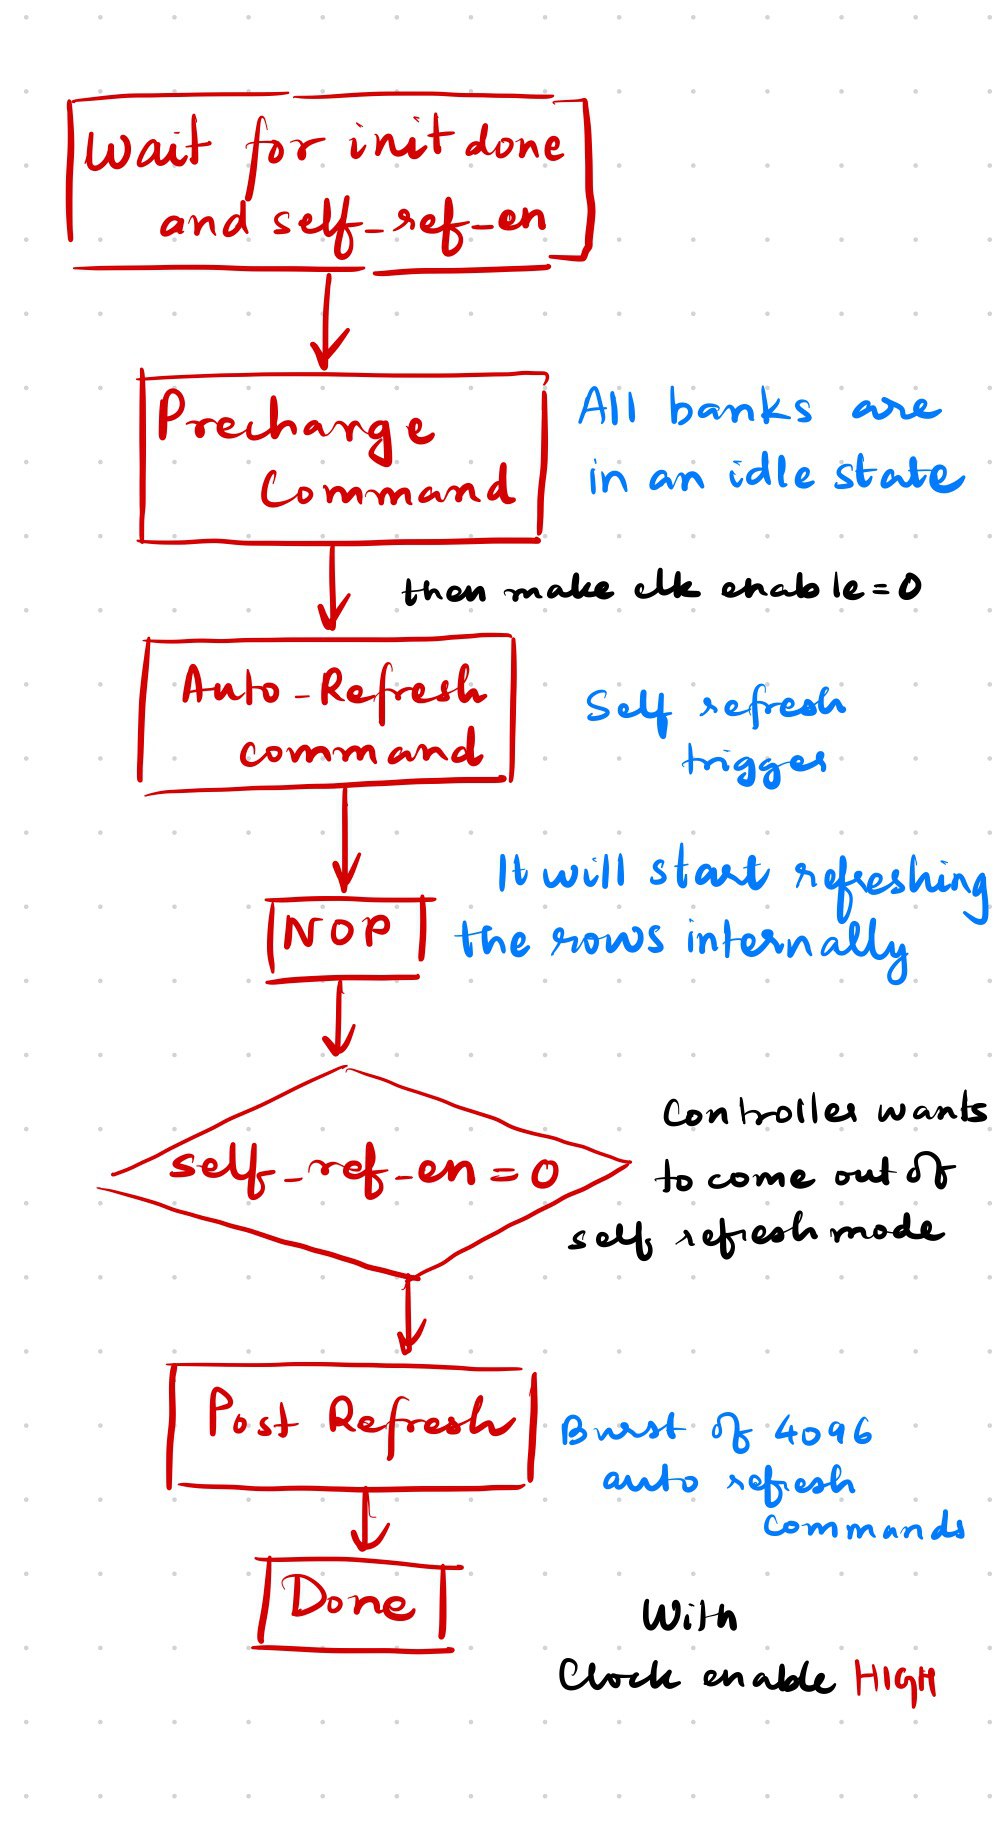 Wait for init done
and self_ref_en
Precharge
Command
All banks are
in an idle state
then make clk enable = 0
Auto-Refresh
command
Self refresh
trigger
It will start refreshing
the rows internally
NOP
self_ref_en = 0
Controller wants
to come out of
self refresh mode
Post Refresh
Burst of 4096
auto refresh
commands
Done
With
Clock enable HIGH